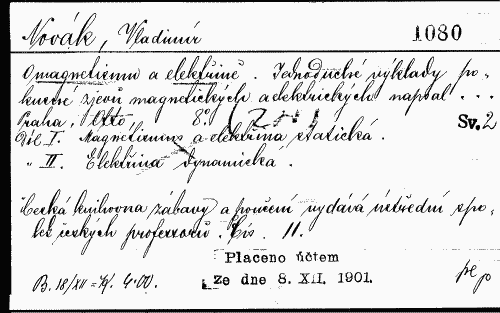 Novák, Vladimír
1080
O magnetismu a elektřině. Jednoduché výklady po-
kusné zjevů magnetických a elektrických napsal ...
Praha, Otto 8º. Sv. 2
Díl I. Magnetismus a elektřina statická.
" II. Elektřina dynamická.
Česká knihovna zábavy a poučení vydává ústřední spo-
lek českých professorů. Čís. 11.
Placeno účtem
Ze dne 8. XII. 1901.
B. 18/XII = K. 4·00.